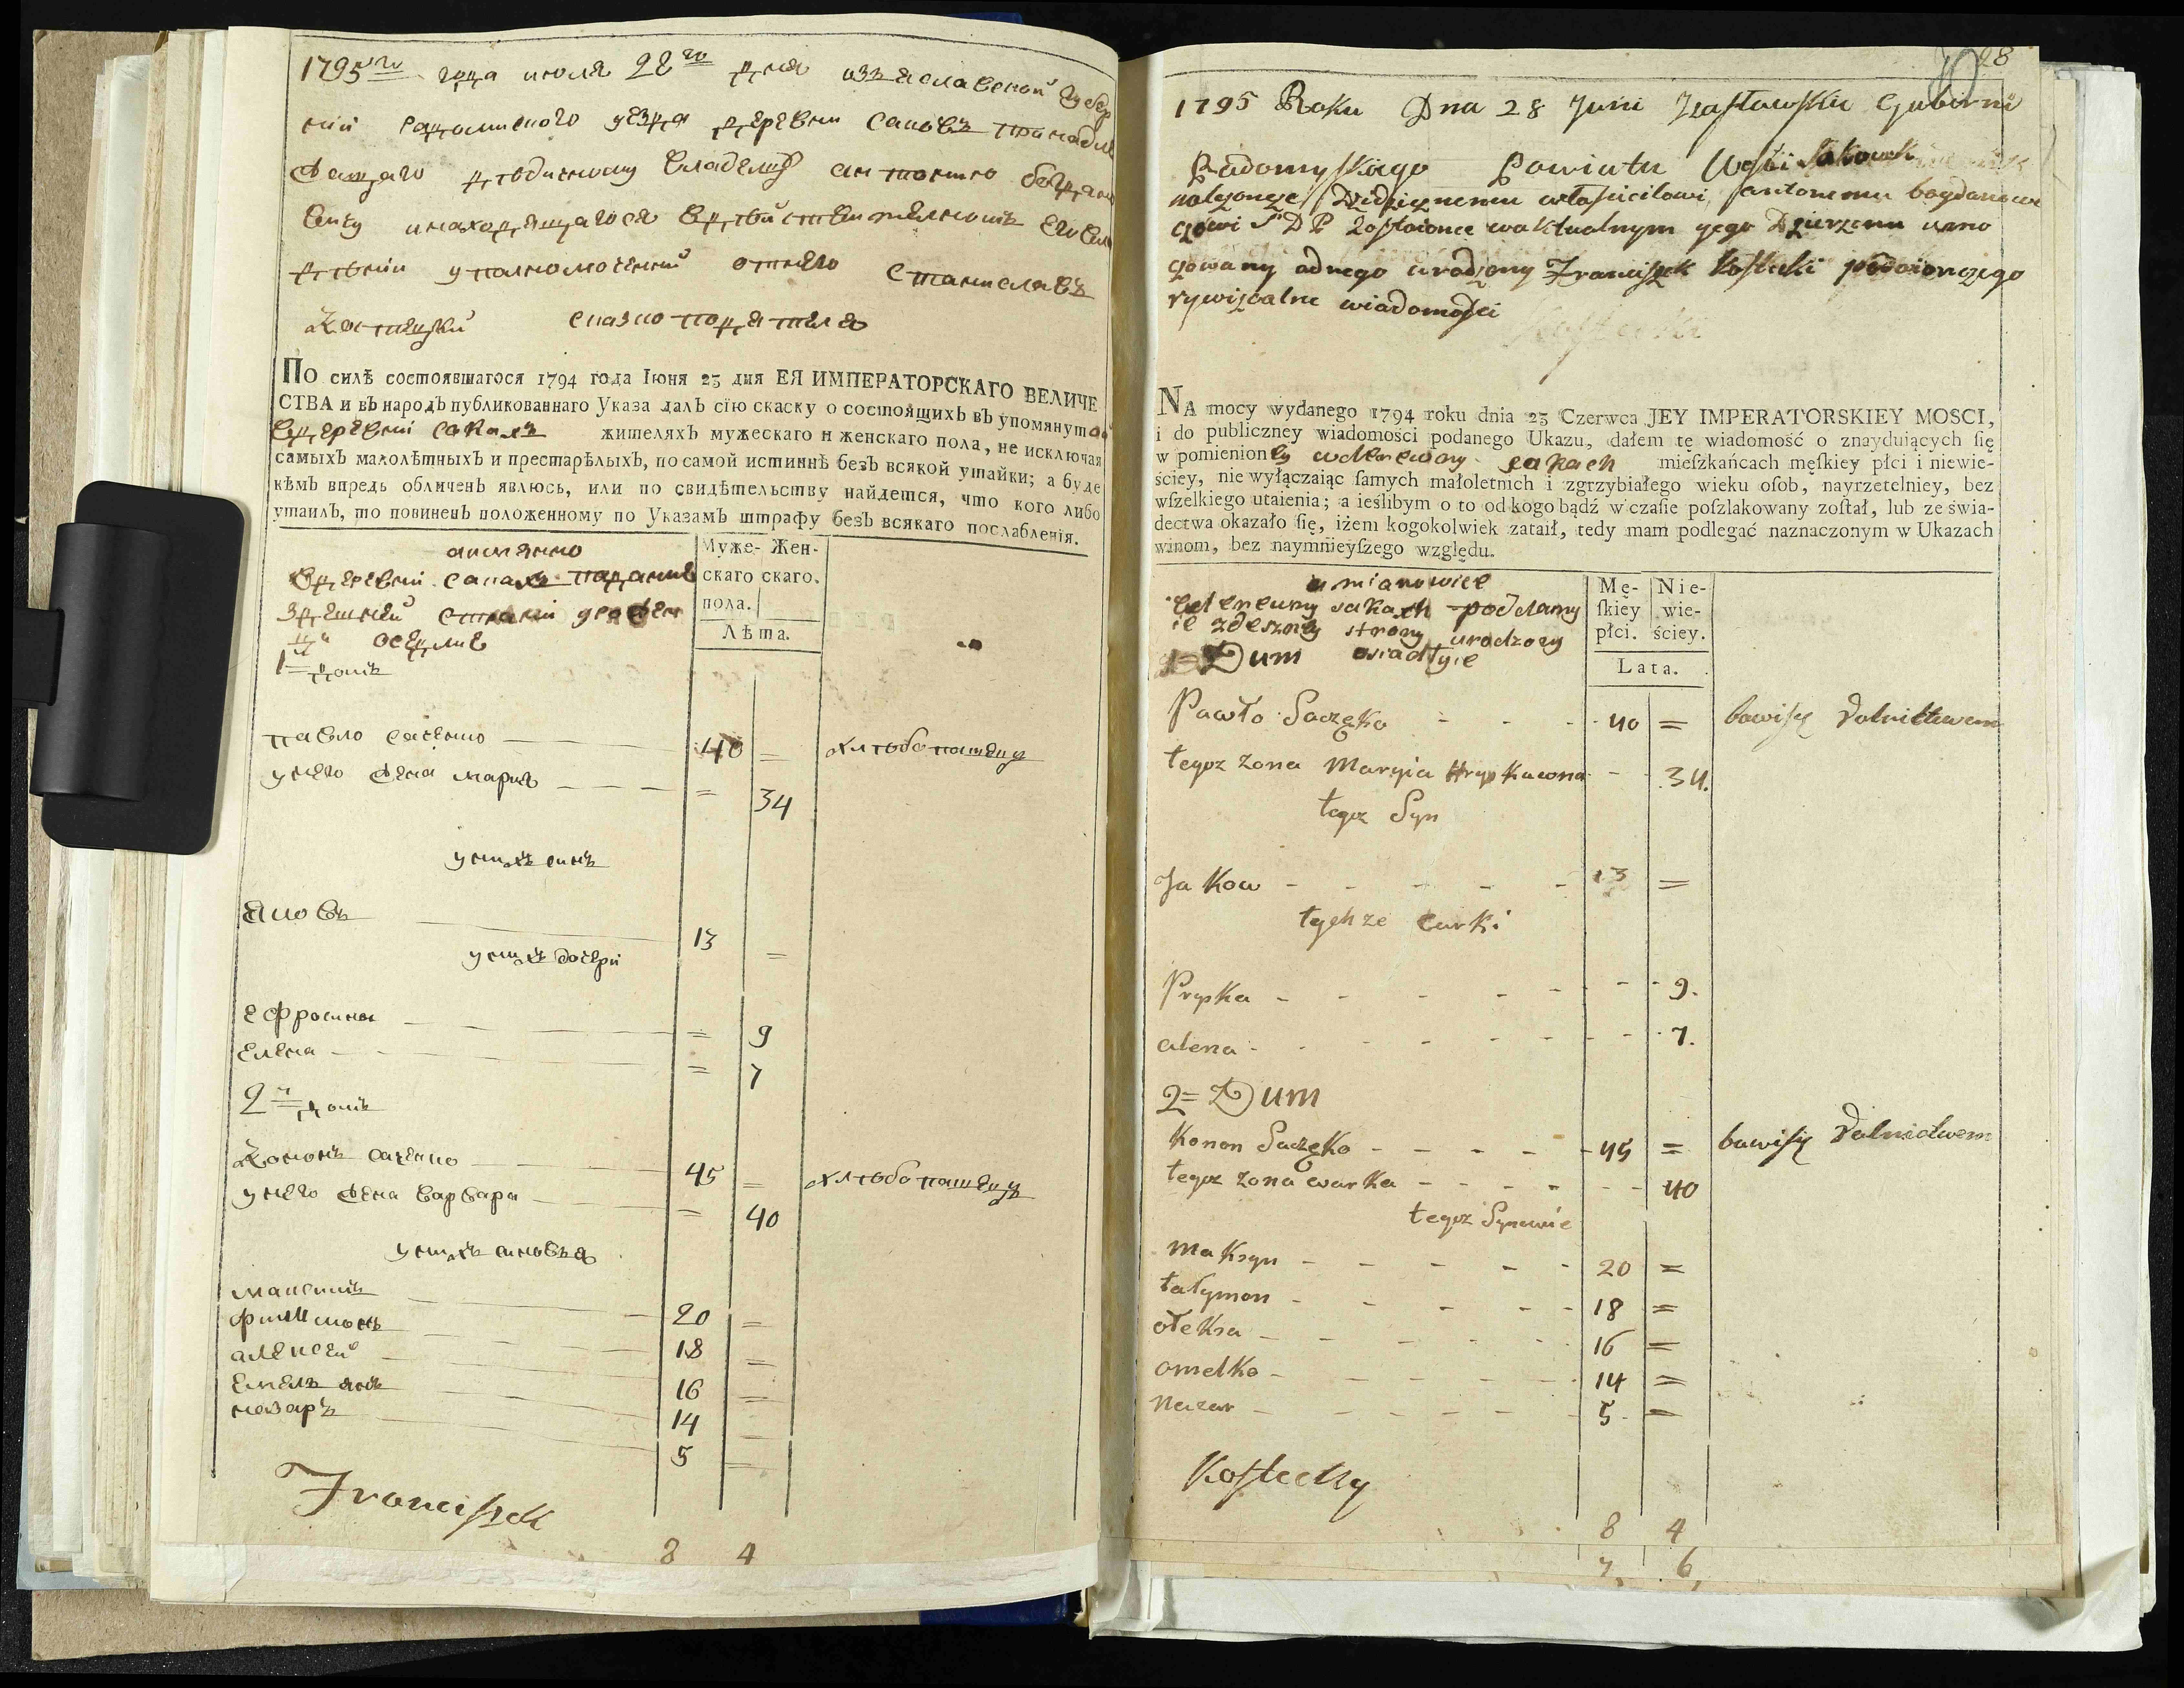 1795го года июля 28го дня изяславской губер
нии радомисного уезда деревни саковъ принадле
жащаго дѣдичному владелцу антонию богдано
вичу и находящагося вдѣйствителномъ его вла
дѣнии уполномоченной отнего станиславъ
Костецкий сказкоподатель
ПО силѣ состоявшагося 1794 года Іюня 23 дня ЕЯ ИМПЕРАТОРСКАГО ВЕЛИЧЕ
СТВА и въ народъ публикованнаго Указа далъ сію скаску о состоящихъ въ упомянутой
вдеревни сакахъ жителяхъ мужескаго и женскаго пола, не исключая
самыхъ малолѣтныхъ и престарѣлыхъ, по самой истиннѣ безъ всякой утайки; а буде
кѣмъ впредь обличенъ явлюсь, или по свидѣтельству найдется, что кого либо
утаилъ, то повиненъ положенному по Указамъ штрафу безъ всякаго послабленія.
аимянно
вдеревни сакахъ подание
здешней страни урожен
ци оседлие
1й домъ
Муже- Жен-
скаго скаго.
пола.
Лѣта.
павло саченко 40 = хлѣбопашецъ
унего жена мария = 34
унихъ синъ
яковъ 13 =
унихъ дочери
ефросиния = 9
елена = 7
2й домъ
Кононъ саченко 45 = хлѣбопашецъ
унего жена варвара = 40
унихъ синовья
максимъ 20 =
филимонъ 18 =
алексей 16 =
емельянъ 14 =
назаръ 5 =
Franciszek
8 4
28
1795 Roku Dna 28 Juni Zasławskiu Gubernii
Radomyskiego Powiatu Wsi Sakowk
nalezonce Dziedzicznemu własicielowi jantonemu bogdanowi
czowi S D P Zostaionce waktualnym yego Dzierzeniu umo
cowany odnego urodzony Franciszek Kostecki podaionczego
rywizoalne wiadomosci
NA mocy wydanego 1794 roku dnia 23 Czerwca JEY IMPERATORSKIEY MOSCI,
i do publiczney wiadomości podanego Ukazu, dałem tę wiadomość o znayduiących ſię
w pomienioney wderewny sakach mieſzkańcach męſkiey płci i niewie-
ściey, nie wyłączaiąc ſamych małoletnich i zgrzybiałego wieku oſob, nayrzetelniey, bez
wſzelkiego utaienia; a ieślibym o to od kogo bądź w czaſie poſzlakowany zoſtał, lub ze świa-
dectwa okazało ſię, iżem kogokolwiek zataił, tedy mam podlegać naznaczonym w Ukazach
winom, bez naymnieyſzego względu.
a mianowice
wderewny sakach poddamy
ie zdeszney strony urodzony
1= Dum osiadłyie
Mę- Nie-
ſkiey wie-
płci. ściey.
Lata.
Pawło Saczęko 40 = bawisię Rolnictwem
tegoz zona Maryia Hrypkuwna 34.
tegoz Syn
Jakow 13 =
tychze Curki
Pryska 9.
alena 7.
2= Dum
Konon Saczęko 45 = bawisię Rolnictwem
tegoz zona warka 40
tegoz Synowie
Maksyn 20 =
tałymon 18 =
ołeksa 16 =
omelko 14 =
Nazar 5 =
Kostecky
8 4
7 6